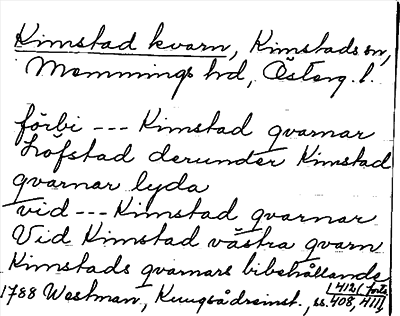 Kimstad kvarn, Kimstads sn,
Memmings hd, Österg. l.
förbi --- Kimstad qvarnar
Löfstad derunder Kimstad
qvarnar lyda
vid --- Kimstad qvarnar
Vid Kimstad västra qvarn
Kimstads qvarnars bibehållande
1788 Westman, Kungsådreinst., ss. 408, 411,
412 (forts.